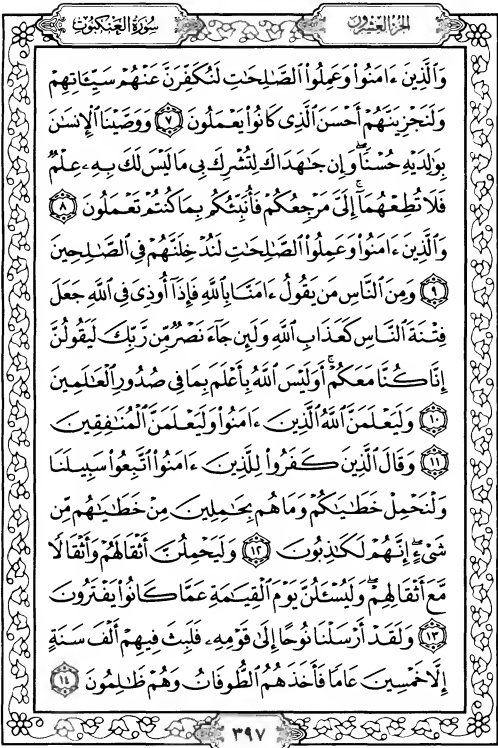 الجزء العشرون
سورة العنكبوت
وَالَّذِينَ ءَامَنُوا۟ وَعَمِلُوا۟ الصَّـٰلِحَـٰتِ لَنُكَفِّرَنَّ عَنْهُمْ سَيِّـَٔاتِهِمْ
وَلَنَجْزِيَنَّهُمْ أَحْسَنَ الَّذِى كَانُوا۟ يَعْمَلُونَ ٧ وَوَصَّيْنَا الْإِنسَـٰنَ
بِوَٰلِدَيْهِ حُسْنًا ۖ وَإِن جَـٰهَدَاكَ لِتُشْرِكَ بِى مَا لَيْسَ لَكَ بِهِۦ عِلْمٌ
فَلَا تُطِعْهُمَا ۚ إِلَىَّ مَرْجِعُكُمْ فَأُنَبِّئُكُم بِمَا كُنتُمْ تَعْمَلُونَ ٨
وَالَّذِينَ ءَامَنُوا۟ وَعَمِلُوا۟ الصَّـٰلِحَـٰتِ لَنُدْخِلَنَّهُمْ فِى الصَّـٰلِحِينَ
٩ وَمِنَ النَّاسِ مَن يَقُولُ ءَامَنَّا بِاللَّهِ فَإِذَآ أُوذِىَ فِى اللَّهِ جَعَلَ
فِتْنَةَ النَّاسِ كَعَذَابِ اللَّهِ وَلَئِن جَآءَ نَصْرٌ مِّن رَّبِّكَ لَيَقُولُنَّ
إِنَّا كُنَّا مَعَكُمْ ۚ أَوَلَيْسَ اللَّهُ بِأَعْلَمَ بِمَا فِى صُدُورِ الْعَـٰلَمِينَ
١٠ وَلَيَعْلَمَنَّ اللَّهُ الَّذِينَ ءَامَنُوا۟ وَلَيَعْلَمَنَّ الْمُنَـٰفِقِينَ
١١ وَقَالَ الَّذِينَ كَفَرُوا۟ لِلَّذِينَ ءَامَنُوا۟ اتَّبِعُوا۟ سَبِيلَنَا
وَلْنَحْمِلْ خَطَـٰيَـٰكُمْ وَمَا هُم بِحَـٰمِلِينَ مِنْ خَطَـٰيَـٰهُم مِّن
شَىْءٍ ۖ إِنَّهُمْ لَكَـٰذِبُونَ ١٢ وَلَيَحْمِلُنَّ أَثْقَالَهُمْ وَأَثْقَالًا
مَّعَ أَثْقَالِهِمْ ۖ وَلَيُسْـَٔلُنَّ يَوْمَ الْقِيَـٰمَةِ عَمَّا كَانُوا۟ يَفْتَرُونَ
١٣ وَلَقَدْ أَرْسَلْنَا نُوحًا إِلَىٰ قَوْمِهِۦ فَلَبِثَ فِيهِمْ أَلْفَ سَنَةٍ
إِلَّا خَمْسِينَ عَامًا فَأَخَذَهُمُ الطُّوفَانُ وَهُمْ ظَـٰلِمُونَ ١٤
٣٩٧